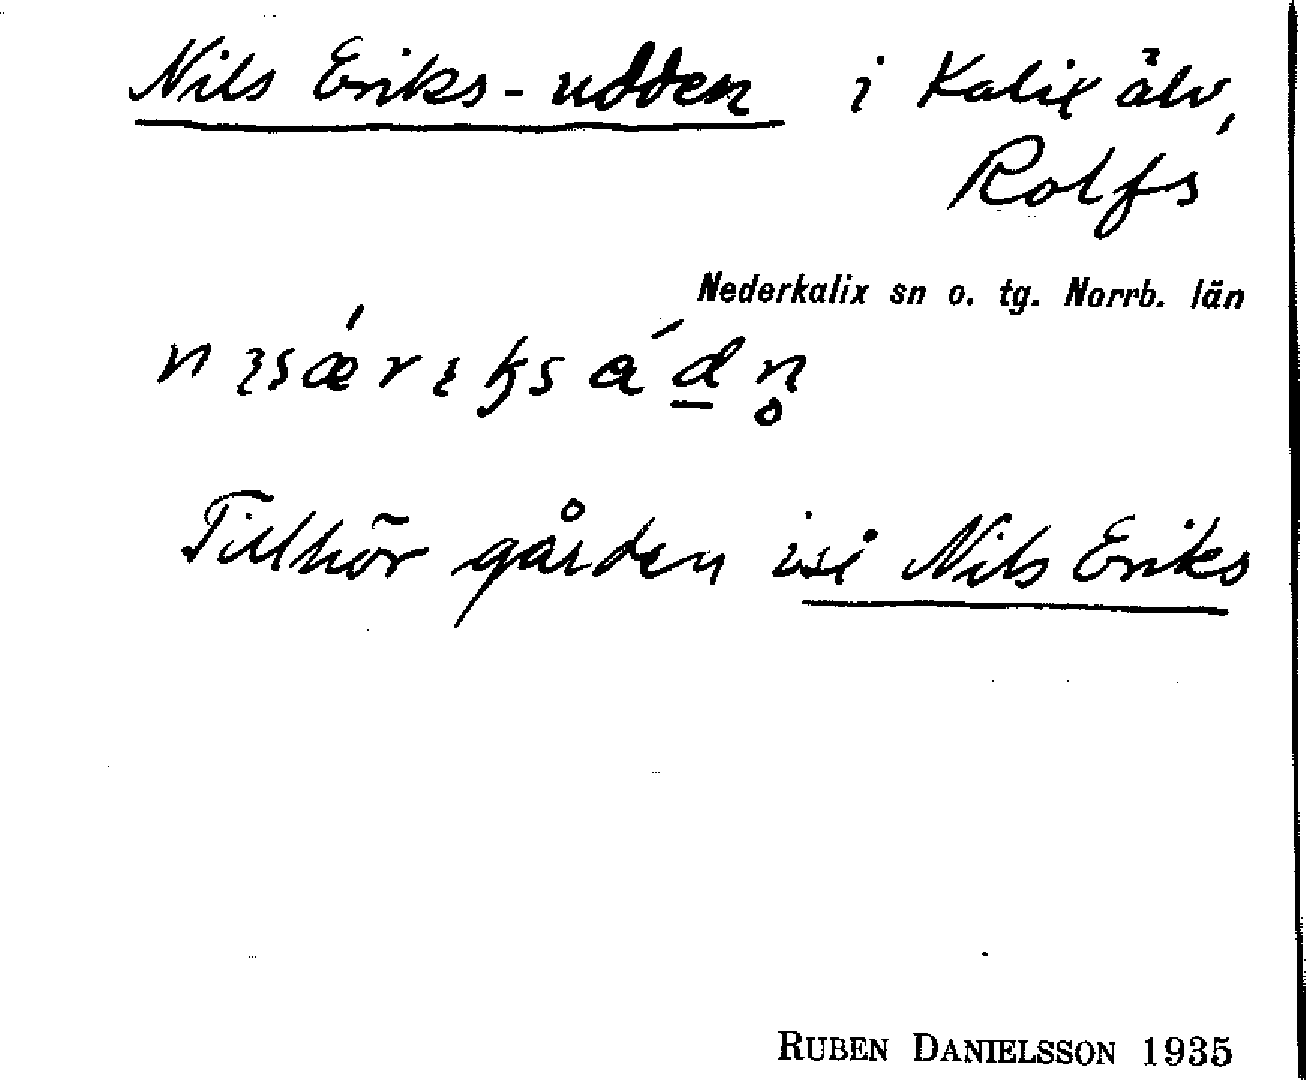 Nils Eriks-udden i Kalix älv,
Rolfs
Nederkalix sn o. tg. Norrb. län
Tillhör gården isi Nils Eriks
RUBEN DANIELSSON 1935